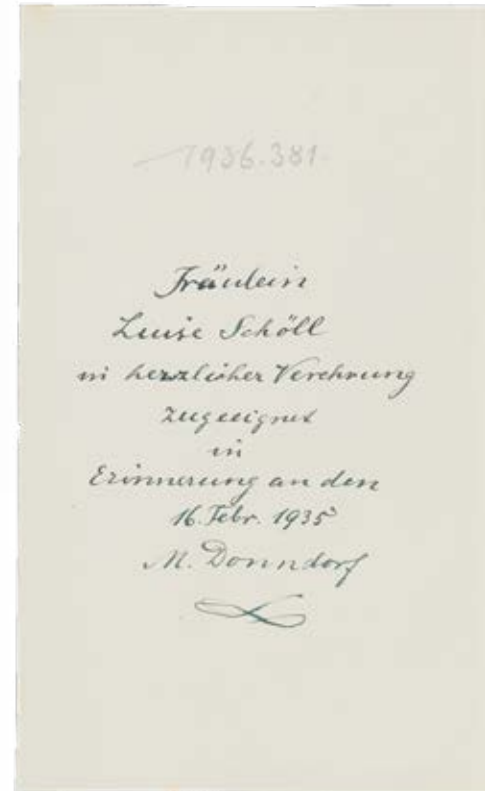 1936.381.
Fräulein
Luise Schöll
in herzlicher Verehrung
zugeeignet
in
Erinnerung an den
16. Febr. 1935
M. Donndorf